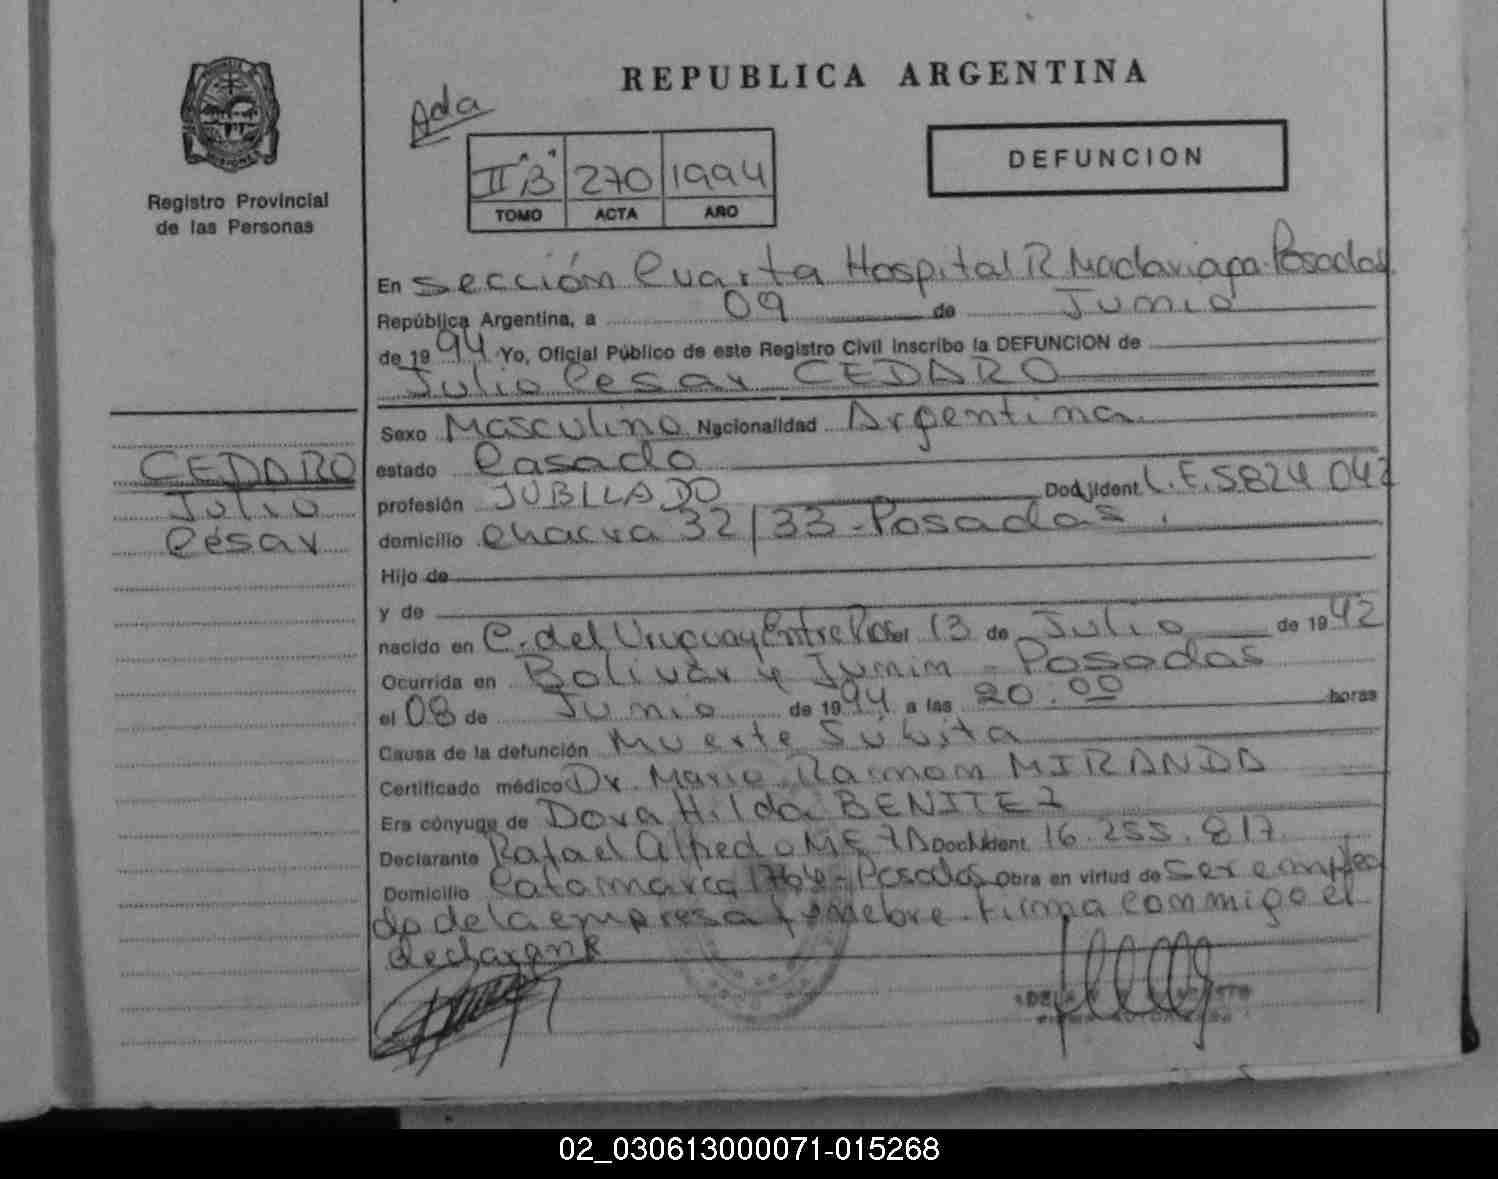 REPUBLICA ARGENTINA
Ada
DEFUNCION
II "B" 270 1994
TOMO ACTA AÑO
Registro Provincial
de las Personas
En Sección Cuarta Hospital R Madariaga-Posadas
República Argentina, a 09 de Junio
de 1994 Yo, Oficial Público de este Registro Civil inscribo la DEFUNCION de
Julio Cesar CEDARO
Sexo Masculino Nacionalidad Argentina
CEDARO
Julio
César
estado Casado
profesión JUBILADO Doc. Ident. L.E.5824 042
domicilio Chacra 32/33-Posadas.
Hijo de
y de
nacido en C. del Uruguay Entre Rios el 13 de Julio de 1942
Ocurrida en Bolivar y Junin - Posadas
el 08 de Junio de 1994 a las 20.00 horas
Causa de la defunción Muerte Súbita
Certificado médico Dr. Mario Ramon MIRANDA
Era cónyuge de Dora Hilda BENITEZ
Declarante Rafael Alfredo MEZA Doc. Ident. 16.255.817
Domicilio Catamarca 1764-Posadas Obra en virtud de Ser emplea
do de la empresa funebre. firma conmigo el
declarante
02_030613000071-015268